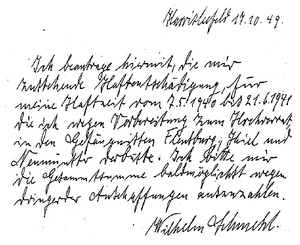 Harrisleefeld 17.10.49.
Ich beantrage hiermit, die mir
zustehende Haftentschädigung, für
meine Haftzeit vom 7.5.1940 bis 21.6.1941
die ich wegen Vorbereitung zum Hochverrat
in den Gefängnissen Flensburg, Kiel und
Neumünster verbüßte. Ich bitte mir
die Gesamtsumme baldmöglichst wegen
dringender Anschaffungen auszuzahlen.
Wilhelm